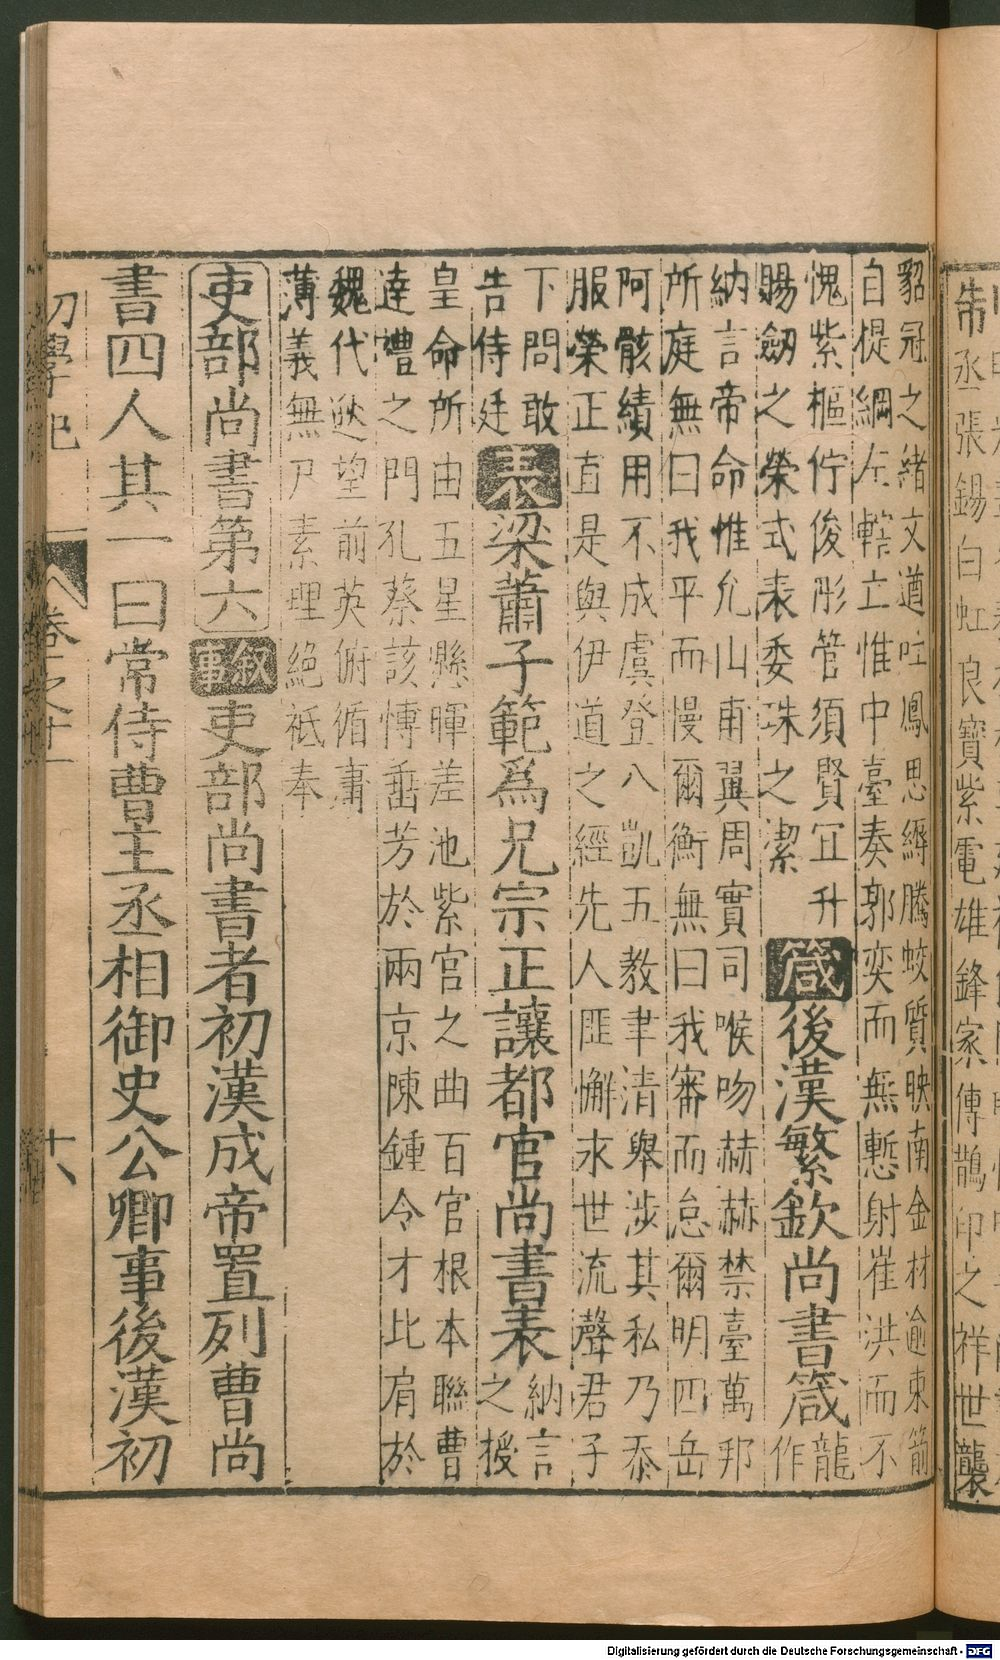 貂冠之緒文遒吐鳳思縟騰蛟質映南金材逾東箭
自提綱左轄立惟中臺奏郭奕而無慙射崔洪而不
愧紫樞佇俊彤管須賢冝升
賜劒之榮式表委珠之潔
箴後漢繁欽尚書箴
龍
作
納言帝命惟允山甫翼周實司喉吻赫赫禁臺萬邦
所庭無曰我平而慢爾衡無曰我審而怠爾明四岳
阿骸績用不成虞登八凱五教聿清舉涉其私乃忝
服榮正直是與伊道之經先人匪懈求世流聲君子
下問敢
告侍廷
表梁蕭子範爲兄宗正讓都官尚書表
納言
之授
皇命所由五星懸暉差池紫官之曲百官根本聯曹
達禮之門孔蔡該慱垂芳於兩京陳鍾令才比肩於
魏代逖望前英俯循庸
薄義無尸素理絕祇奉
吏部尚書第六
叙事
吏部尚書者初漢成帝置列曹尚
書四人其一曰常侍曹主丞相御史公卿事後漢初
初學記
卷之十一
十八
制丞張錫白虹良寶紫電雄鋒家傳鵲印之祥世襲
Digitalisierung gefördert durch die Deutsche Forschungsgemeinschaft - DFG